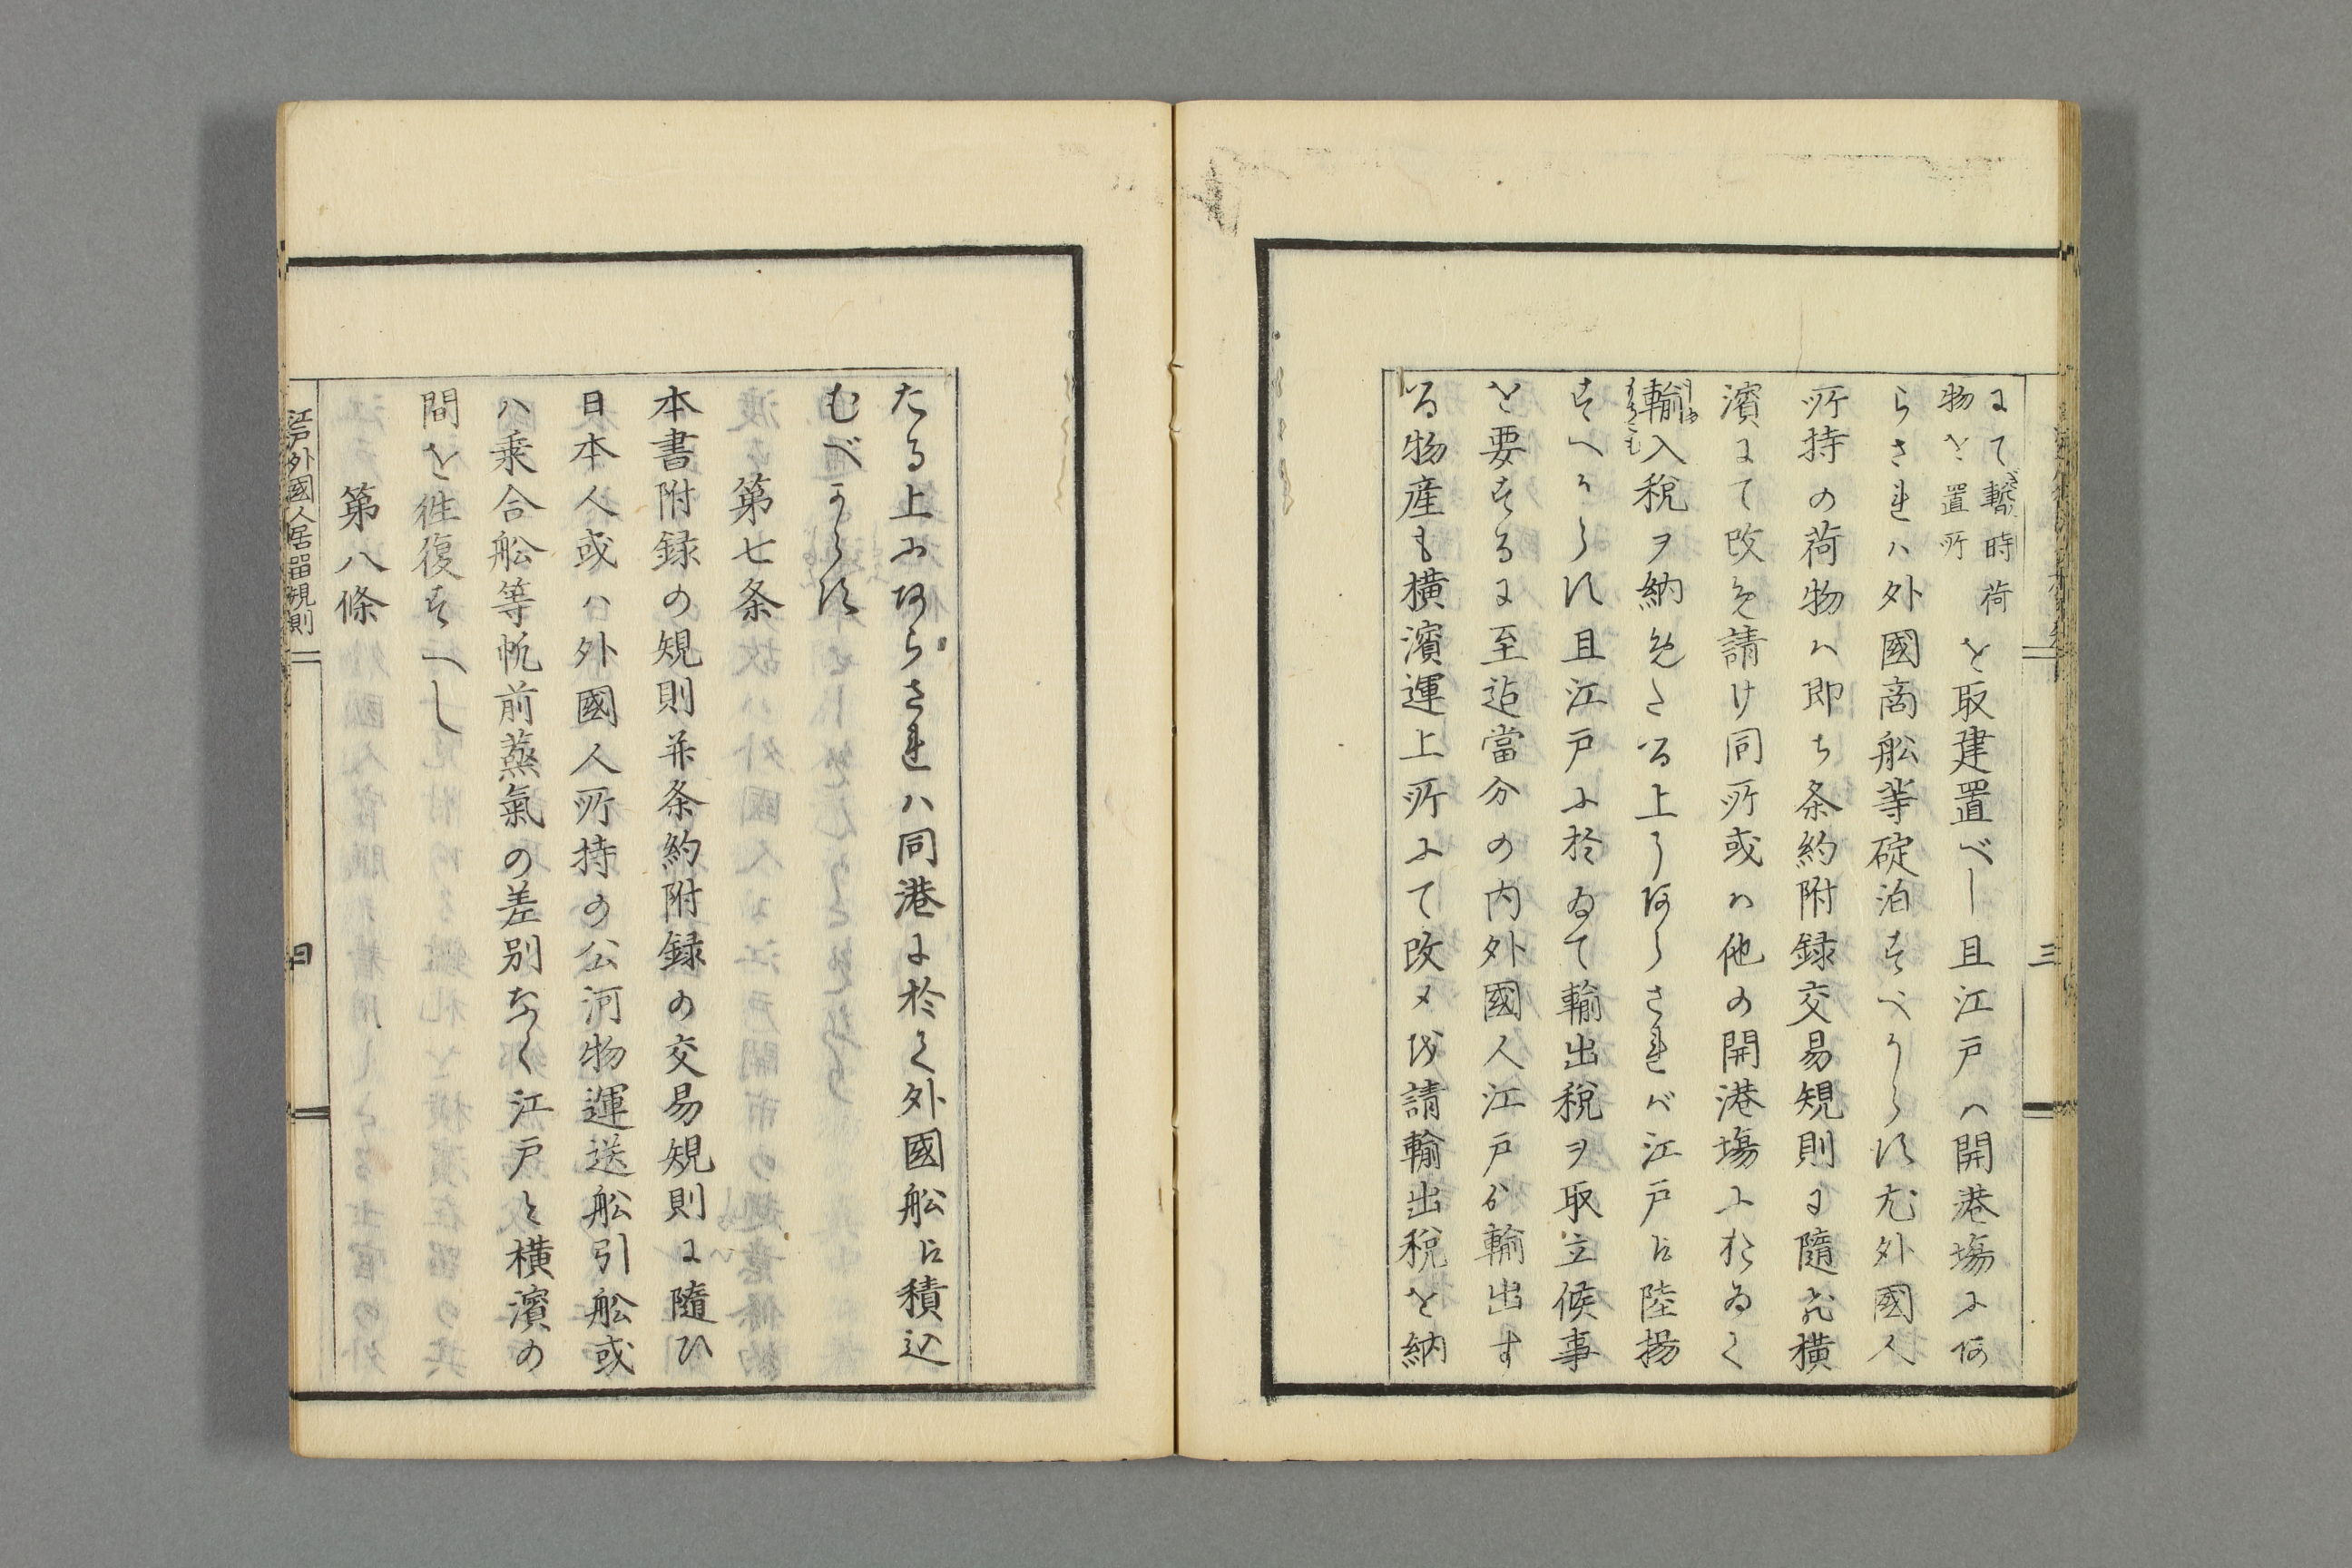 にて暫時荷
物を置所
を取建置べし且江戸ハ開港場に阿
らされハ外國商舩等碇泊すべからす尤外國人
所持の荷物ハ即ち条約附録交易規則に隨ひ横
濱にて改免請け同所或ハ他の開港場におゐて
輸入税ヲ納免たる上にあらされバ江戸に陸揚
すへからす且江戸に於ゐて輸出税ヲ取立候事
を要するに至迄當分の内外國人江戸より輸出す
る物産も横濱運上所にて改メを請輸出税を納
三
たる上に阿らされハ同港に於て外國舩に積込
むべからす
第七条
本書附録の規則并条約附録の交易規則に隨ひ
日本人或ハ外國人所持の公河物運送舩引舩或
ハ乗合舩等帆前蒸氣の差別なく江戸と横濱の
間を徃復すへし
第八條
江戸外國人居畄規則